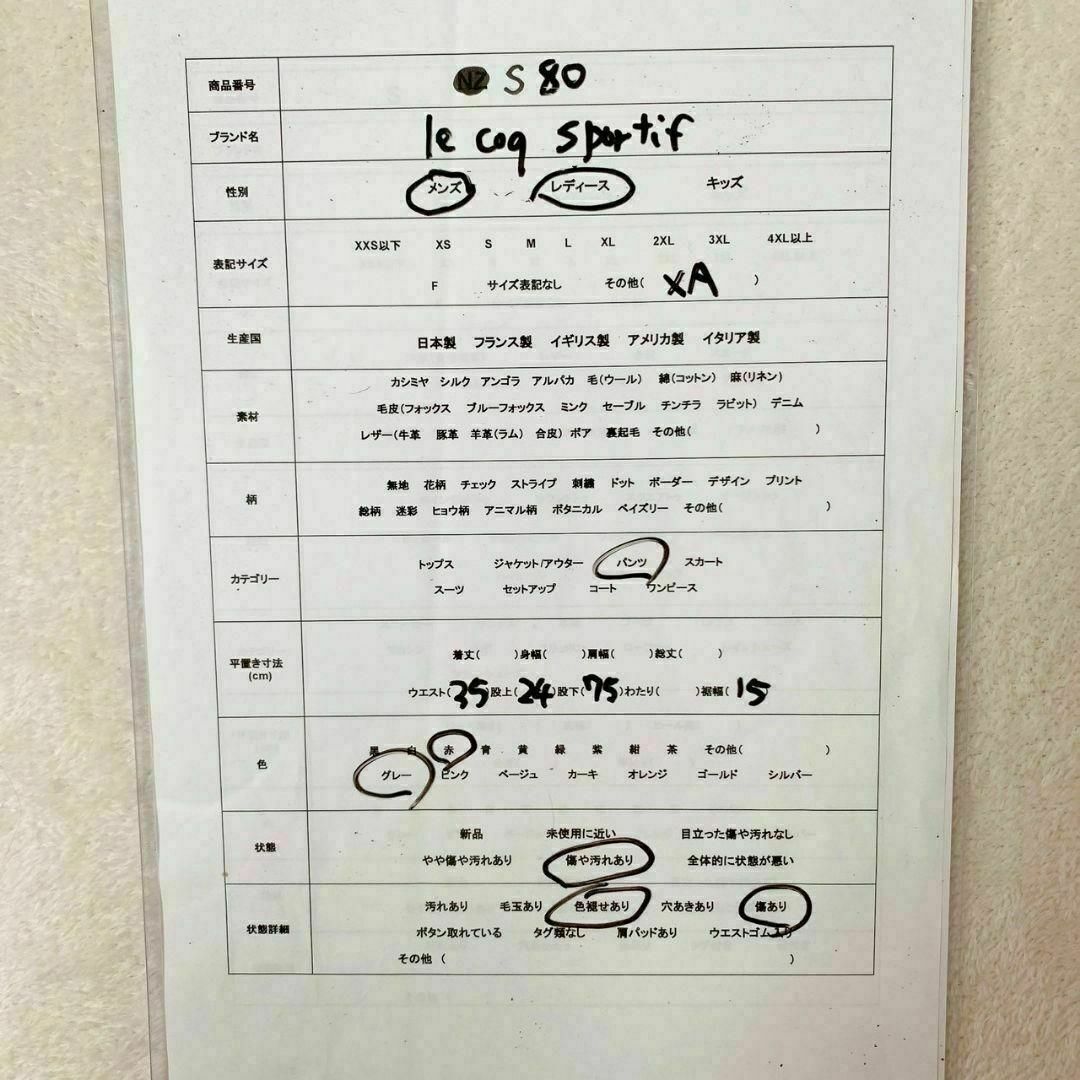 商品番号 NZ S 80
ブランド名 le coq sportif
性別 メンズ レディース キッズ
XXS以下 XS S M L XL 2XL 3XL 4XL以上
表記サイズ
F サイズ表記なし その他( XA )
生産国 日本製 フランス製 イギリス製 アメリカ製 イタリア製
カシミヤ シルク アンゴラ アルパカ 毛(ウール) 綿(コットン) 麻(リネン)
素材 毛皮(フォックス ブルーフォックス ミンク セーブル チンチラ ラビット) デニム
レザー(牛革 豚革 羊革(ラム) 合皮) ボア 裏起毛 その他( )
柄 無地 花柄 チェック ストライプ 刺繍 ドット ボーダー デザイン プリント
総柄 迷彩 ヒョウ柄 アニマル柄 ボタニカル ペイズリー その他( )
トップス ジャケット/アウター パンツ スカート
カテゴリー
スーツ セットアップ コート ワンピース
着丈( )身幅( )肩幅( )総丈( )
平置き寸法
(cm)
ウエスト(35)股上(24)股下(75)わたり( )裾幅( 15
黒 白 赤 青 黄 緑 紫 紺 茶 その他( )
色
グレー ピンク ベージュ カーキ オレンジ ゴールド シルバー
新品 未使用に近い 目立った傷や汚れなし
状態
やや傷や汚れあり 傷や汚れあり 全体的に状態が悪い
汚れあり 毛玉あり 色褪せあり 穴あきあり 傷あり
状態詳細 ボタン取れている タグ類なし 肩パッドあり ウエストゴム入り
その他 ( )